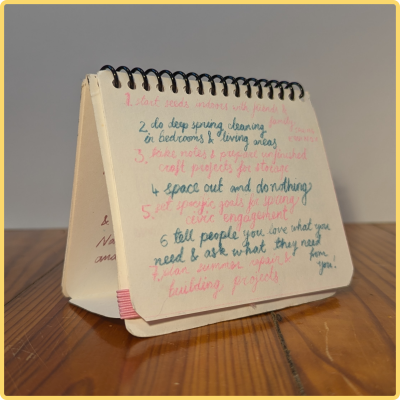 1. start seeds indoors with friends &
family
2. do deep spring cleaning
in bedrooms & living areas
3. take notes & prepare unfinished
craft projects for stories
4 space out and do nothing
5. set specific goals for spring
civic engagement
6 tell people you love what you
need & ask what they need
from
you!
7. plan summer repair &
building projects
&
Na
and